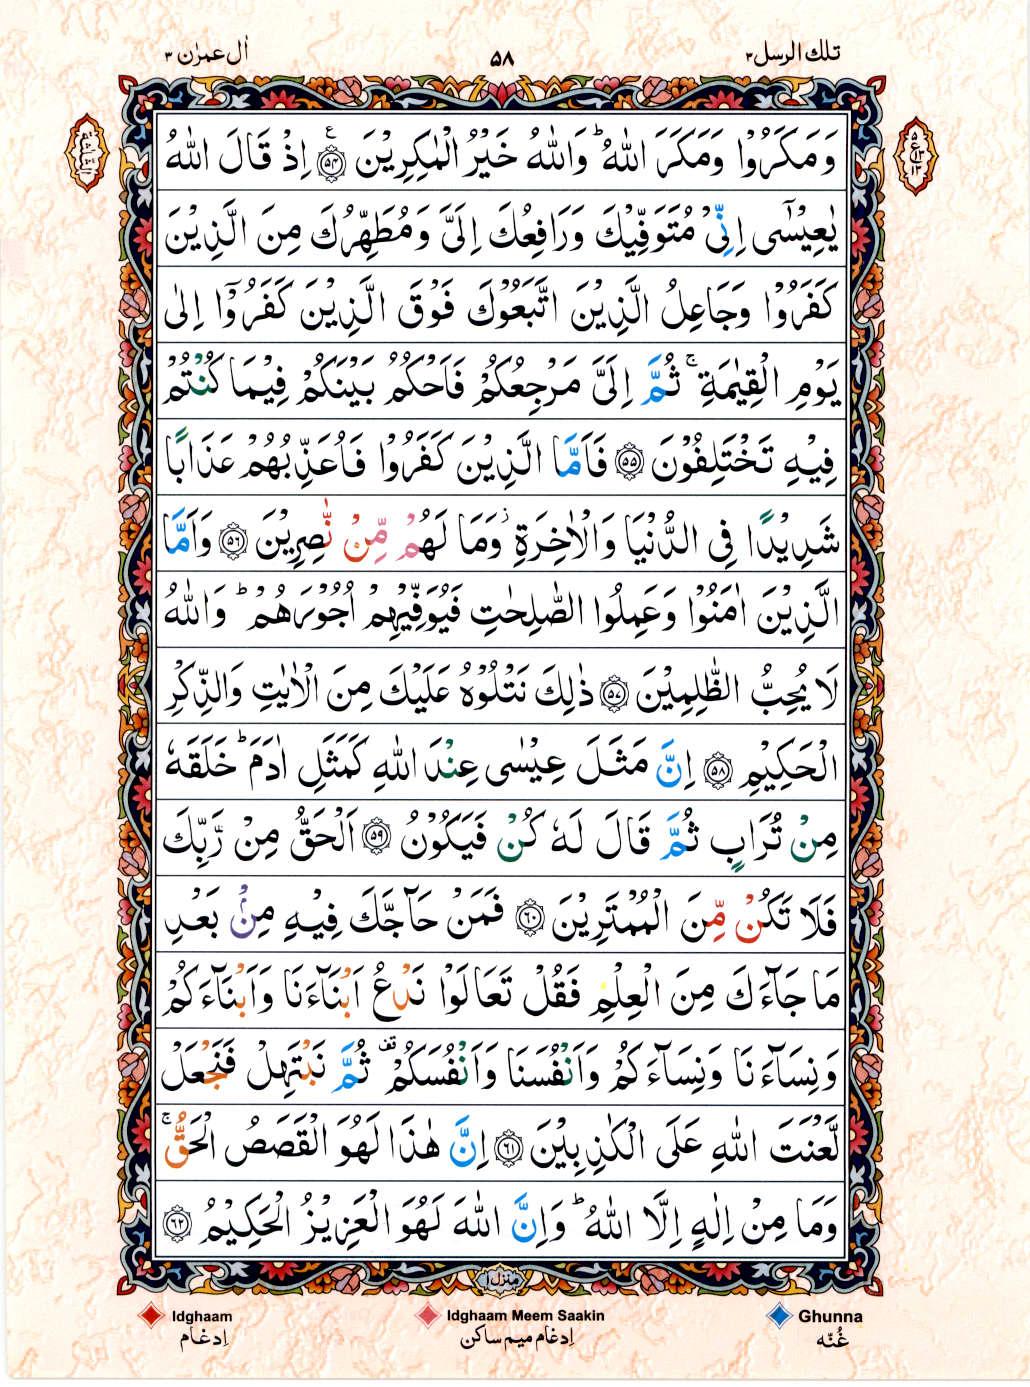 تلك الرسل ۳
۵۸
اٰل عمرٰن ۳
وَمَكَرُوْا وَمَكَرَ اللّٰهُ ؕ وَاللّٰهُ خَيْرُ الْمٰكِرِيْنَ ﴿۵۴﴾ اِذْ قَالَ اللّٰهُ
يٰعِيْسٰۤى اِنِّىْ مُتَوَفِّيْكَ وَرَافِعُكَ اِلَىَّ وَمُطَهِّرُكَ مِنَ الَّذِيْنَ
كَفَرُوْا وَجَاعِلُ الَّذِيْنَ اتَّبَعُوْكَ فَوْقَ الَّذِيْنَ كَفَرُوْۤا اِلٰى
يَوْمِ الْقِيٰمَةِ ۚ ثُمَّ اِلَىَّ مَرْجِعُكُمْ فَاَحْكُمُ بَيْنَكُمْ فِيْمَا كُنْتُمْ
فِيْهِ تَخْتَلِفُوْنَ ﴿۵۵﴾ فَاَمَّا الَّذِيْنَ كَفَرُوْا فَاُعَذِّبُهُمْ عَذَابًا
شَدِيْدًا فِى الدُّنْيَا وَالْاٰخِرَةِ ؗ وَمَا لَهُمْ مِّنْ نّٰصِرِيْنَ ﴿۵۶﴾ وَاَمَّا
الَّذِيْنَ اٰمَنُوْا وَعَمِلُوا الصّٰلِحٰتِ فَيُوَفِّيْهِمْ اُجُوْرَهُمْ ؕ وَاللّٰهُ
لَا يُحِبُّ الظّٰلِمِيْنَ ﴿۵۷﴾ ذٰلِكَ نَتْلُوْهُ عَلَيْكَ مِنَ الْاٰيٰتِ وَالذِّكْرِ
الْحَكِيْمِ ﴿۵۸﴾ اِنَّ مَثَلَ عِيْسٰى عِنْدَ اللّٰهِ كَمَثَلِ اٰدَمَ ؕ خَلَقَهٗ
مِنْ تُرَابٍ ثُمَّ قَالَ لَهٗ كُنْ فَيَكُوْنُ ﴿۵۹﴾ اَلْحَقُّ مِنْ رَّبِّكَ
فَلَا تَكُنْ مِّنَ الْمُمْتَرِيْنَ ﴿۶۰﴾ فَمَنْ حَآجَّكَ فِيْهِ مِنْۢ بَعْدِ
مَا جَآءَكَ مِنَ الْعِلْمِ فَقُلْ تَعَالَوْا نَدْعُ اَبْنَآءَنَا وَاَبْنَآءَكُمْ
وَنِسَآءَنَا وَنِسَآءَكُمْ وَاَنْفُسَنَا وَاَنْفُسَكُمْ ۫ ثُمَّ نَبْتَهِلْ فَنَجْعَلْ
لَّعْنَتَ اللّٰهِ عَلَى الْكٰذِبِيْنَ ﴿۶۱﴾ اِنَّ هٰذَا لَهُوَ الْقَصَصُ الْحَقُّ ۚ
وَمَا مِنْ اِلٰهٍ اِلَّا اللّٰهُ ؕ وَاِنَّ اللّٰهَ لَهُوَ الْعَزِيْزُ الْحَكِيْمُ ﴿۶۲﴾
منزل ۱
Idghaam
Idghaam Meem Saakin
Ghunna
اِدغام
اِدغام ميم ساكن
غُنّه